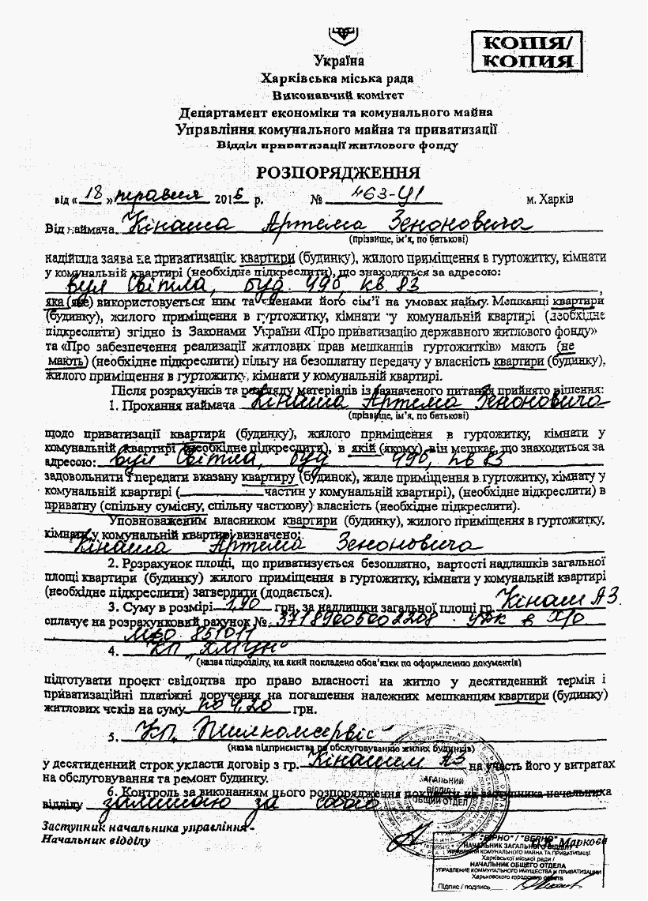 КОПІЯ/
КОПИЯ
Україна
Харківська міська рада
Виконавчий комітет
Департамент економіки та комунального майна
Управління комунального майна та приватизації
Відділ приватизації житлового фонду
РОЗПОРЯДЖЕННЯ
від « 18 » травня 2016 р. № 463-У1 м. Харків
Від наймача Кінаша Артема Зеноновича
(прізвище, ім'я, по батькові)
надійшла заява на приватизацію квартири (будинку), жилого приміщення в гуртожитку, кімнати
у комунальній квартирі (необхідне підкреслити), що знаходяться за адресою:
вул Світла, буд. 49б, кв 83
яка (яке) використовується ним та членами його сім'ї на умовах найму. Мешканці квартири
(будинку), жилого приміщення в гуртожитку, кімнати у комунальній квартирі (необхідне
підкреслити) згідно із Законами України «Про приватизацію державного житлового фонду»
та «Про забезпечення реалізації житлових прав мешканців гуртожитків» мають (не
мають) (необхідне підкреслити) пільгу на безоплатну передачу у власність квартири (будинку),
жилого приміщення в гуртожитку, кімнати у комунальній квартирі.
Після розрахунків та розгляду матеріалів із зазначеного питання прийнято рішення:
1. Прохання наймача Кінаша Артема Зеноновича
(прізвище, ім'я, по батькові)
щодо приватизації квартири (будинку), жилого приміщення в гуртожитку, кімнати у
комунальній квартирі (необхідне підкреслити), в якій (якому) він мешкає, що знаходяться за
адресою: вул Світла, буд 49б, кв 83
задовольнити і передати вказану квартиру (будинок), жиле приміщення в гуртожитку, кімнату у
комунальній квартирі (____ частин у комунальній квартирі), (необхідне підкреслити) в
приватну (спільну сумісну, спільну часткову) власність (необхідне підкреслити).
Уповноваженим власником квартири (будинку), жилого приміщення в гуртожитку,
кімнати у комунальній квартирі визначено:
Кінаша Артема Зеноновича
2. Розрахунок площі, що приватизується безоплатно, вартості надлишків загальної
площі квартири (будинку) жилого приміщення в гуртожитку, кімнати у комунальній квартирі
(необхідне підкреслити) затвердити (додається).
3. Суму в розмірі грн. за надлишки загальної площі гр. Кінаш А.З.
сплачує на розрахунковий рахунок № УДК в Х/О
МФО 851011
4. КП
(назва підрозділу, на який покладено обов'язки по оформленню документів)
підготувати проект свідоцтва про право власності на житло у десятиденний термін і
приватизаційні платіжні доручення на погашення належних мешканцям квартири (будинку)
житлових чеків на суму грн.
5. КП „Жилкомсервіс"
(назва підприємства по обслуговуванню жилих будинків)
у десятиденний строк укласти договір з гр. Кінашем А.З. на участь його у витратах
на обслуговування та ремонт будинку.
6. Контроль за виконанням цього розпорядження покласти на заступника начальника
відділу залишаю за собою
ЗАГАЛЬНИЙ
ВІДДІЛ
ОБЩИЙ ОТДЕЛ
Заступник начальника управління -
Начальник відділу Маркова
"ВІРНО" / "ВЕРНО"
НАЧАЛЬНИК ЗАГАЛЬНОГО ВІДДІЛУ
УПРАВЛІННЯ КОМУНАЛЬНОГО МАЙНА ТА ПРИВАТИЗАЦІЇ
Харківської міської ради /
НАЧАЛЬНИК ОБЩЕГО ОТДЕЛА
УПРАВЛЕНИЕ КОММУНАЛЬНОГО ИМУЩЕСТВА И ПРИВАТИЗАЦИИ
Харьковского городского совета
Підпис / подпись